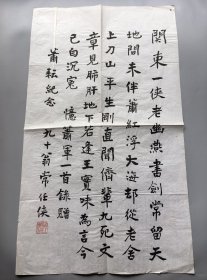 関東一俠老幽燕書劍常留天
地間未伴蕭紅浮大海却從老舍
上刀山平生剛直聞儕輩九死文
章見肺肝地下若逢王實味為言今
已白沉冤 憶蕭軍一首錄贈
蕭耘紀念 九十翁常任俠